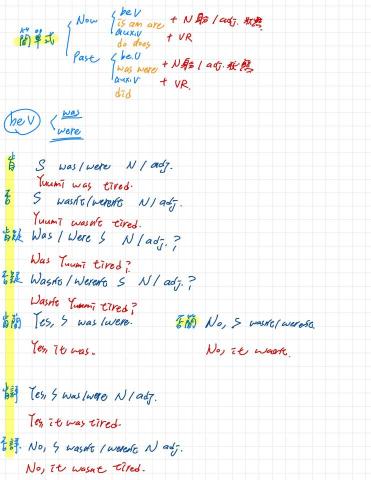 be V
Now is am are + N / adj. 狀態
aux.V + VR
do does
簡單式
Past be.V + N / adj. 狀態
was were
aux.V + VR.
did
be V was
were
肯 S was/were N/adj.
Yuumi was tired.
否 S wasn't/weren't N/adj.
Yuumi wasn't tired.
肯疑 Was/Were S N/adj.?
Was Yuumi tired?
否疑 Wasn't/Weren't S N/adj.?
Wasn't Yuumi tired?
肯簡 Yes, S was/were. 否簡 No, S wasn't/weren't.
Yes, it was. No, it wasn't.
肯詳 Yes, S was/were N/adj.
Yes, it was tired.
否詳 No, S wasn't/weren't N adj.
No, it wasn't tired.